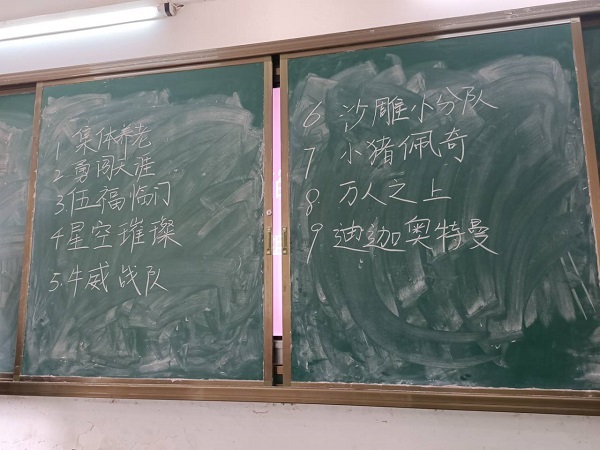 1 集体养老
2 勇闯天涯
3.伍福临门
4 星空璀璨
5.牛威战队
6 沙雕小分队
7 小猪佩奇
8 万人之上
9 迪迦奥特曼